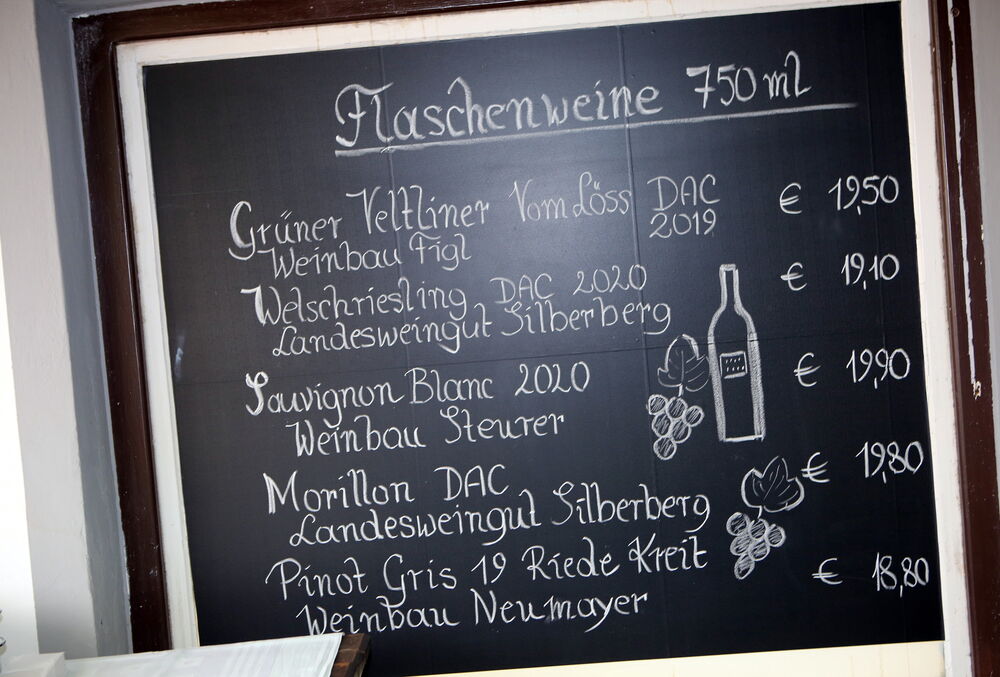 Flaschenweine 750 ml
Grüner Veltliner Vom Löss DAC € 19,50
2019
Weinbau Figl
Welschriesling DAC 2020 € 19,10
Landesweingut Silberberg
Sauvignon Blanc 2020 € 19,90
Weinbau Steurer
Morillon DAC € 19,80
Landesweingut Silberberg
Pinot Gris 19 Riede Kreit € 18,80
Weinbau Neumayer